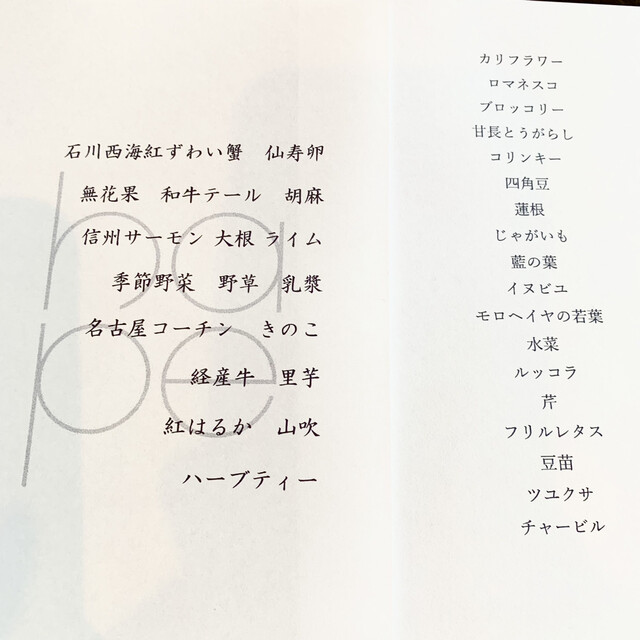 石川西海紅ずわい蟹　仙寿卵
無花果　和牛テール　胡麻
信州サーモン 大根 ライム
季節野菜　野草　乳漿
名古屋コーチン　きのこ
経産牛　里芋
紅はるか　山吹
ハーブティー
ha
pe
カリフラワー
ロマネスコ
ブロッコリー
甘長とうがらし
コリンキー
四角豆
蓮根
じゃがいも
藍の葉
イヌビユ
モロヘイヤの若葉
水菜
ルッコラ
芹
フリルレタス
豆苗
ツユクサ
チャービル